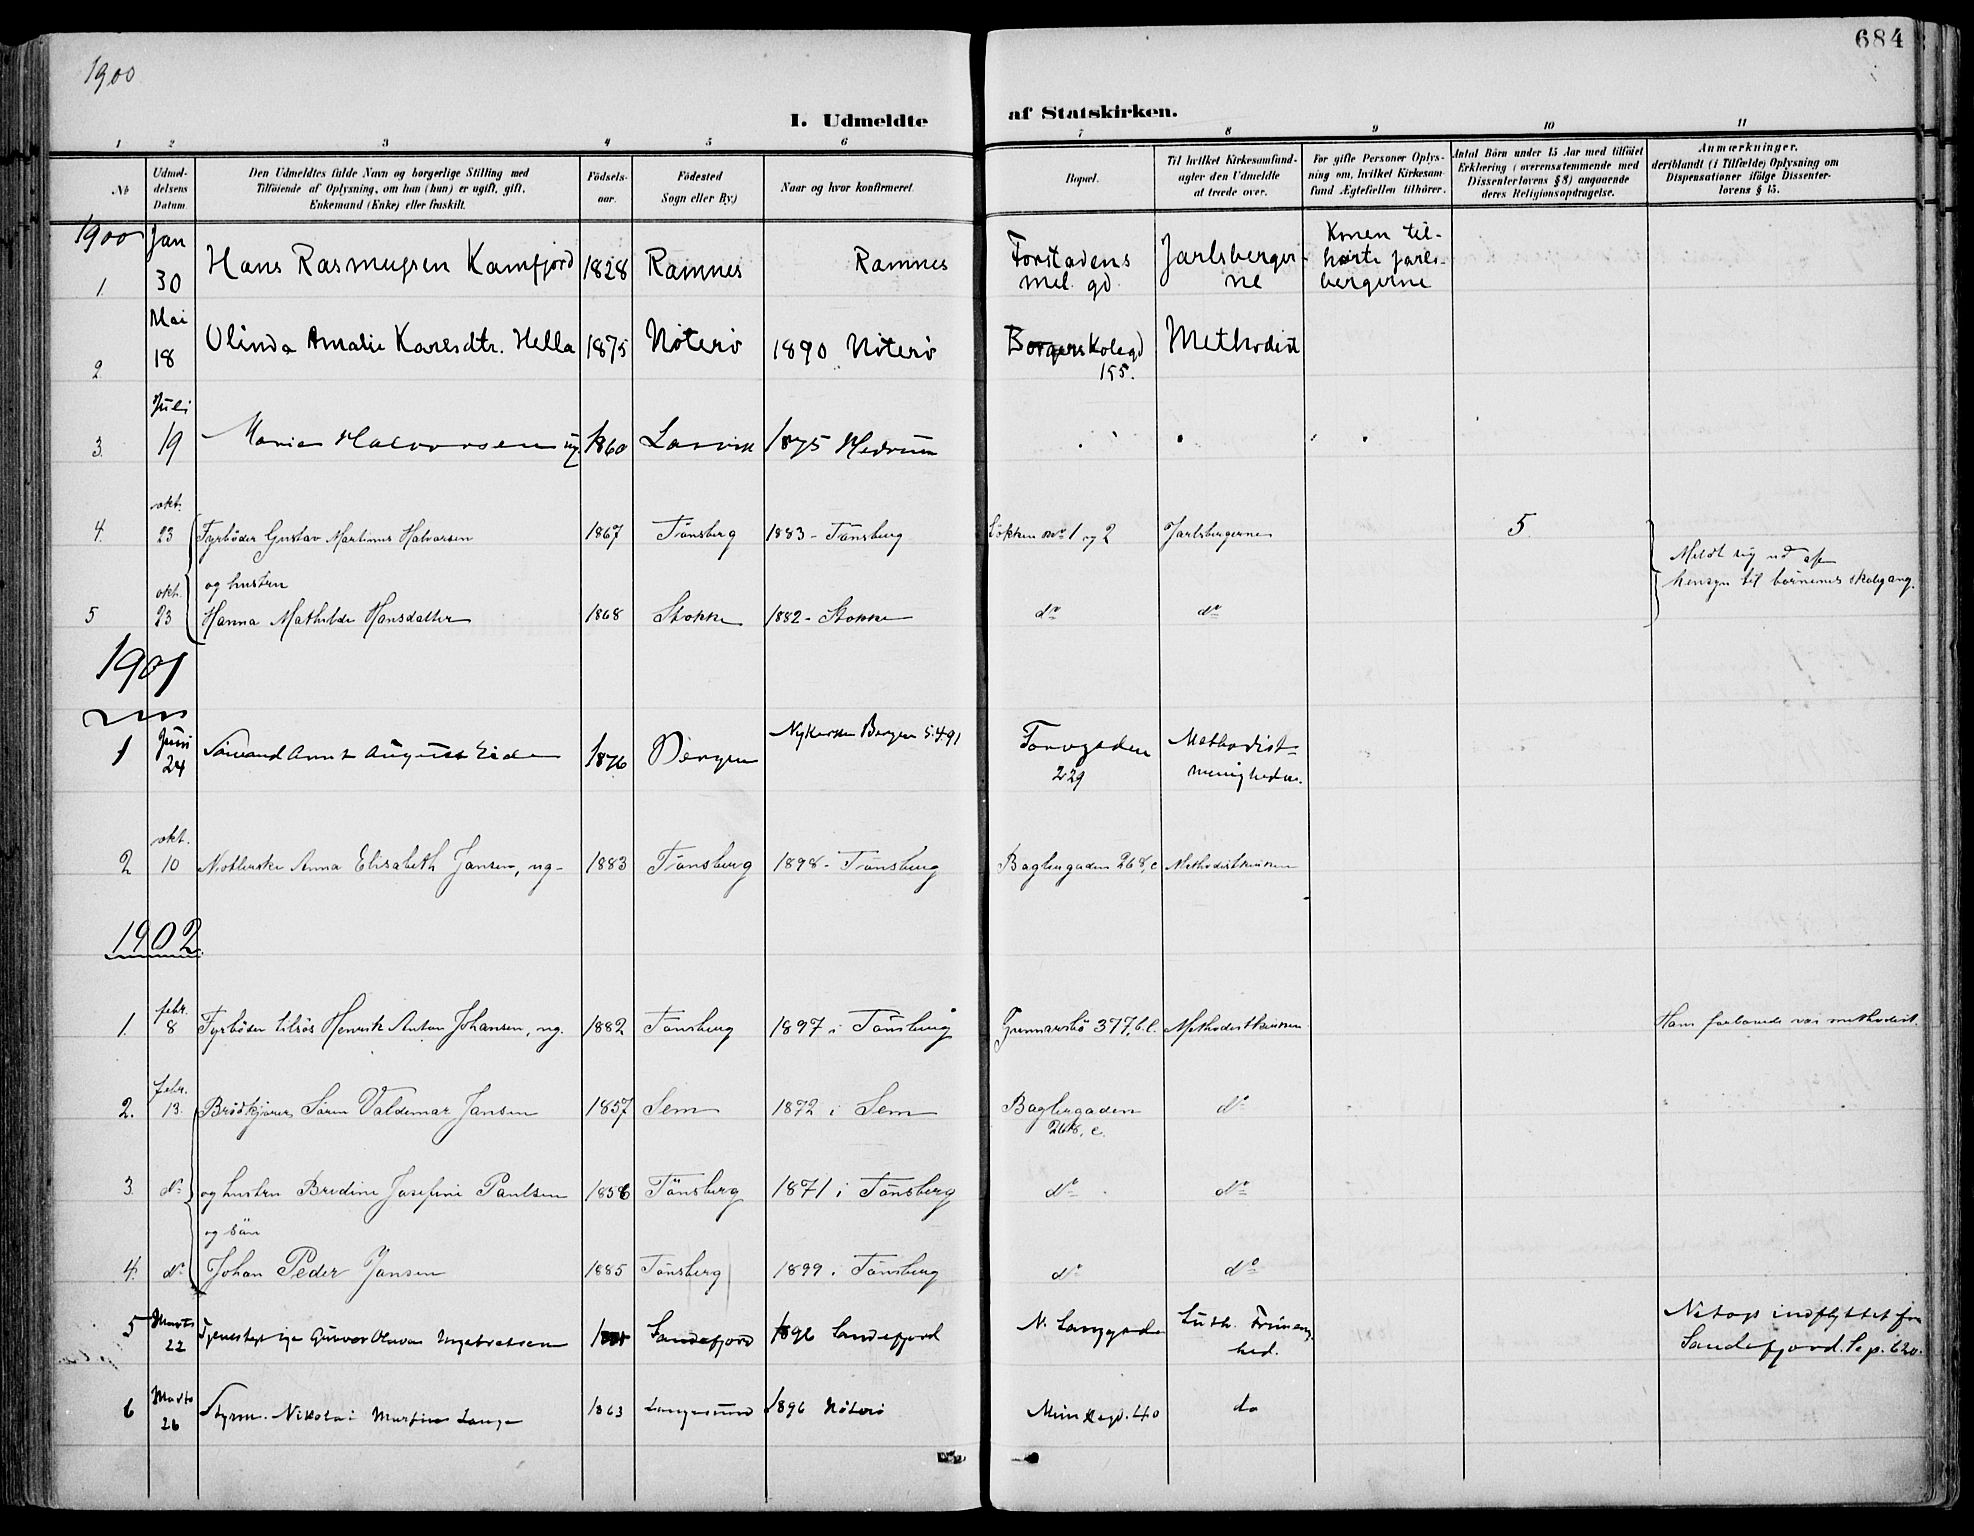 1900
684
I. Udmeldte af Statskirken.
1 2 3 4 5 6 7 8 9 10 11
No
Udmel-
delsens
Datum.
Den Udmeldtes fulde Navn og borgerlige Stilling med
Tilföiende af Oplysning, om han (hun) er ugift, gift,
Enkemand (Enke) eller fraskilt.
Födsels-
aar.
Födested
Sogn eller By.)
Naar og hvor konfirmeret.
Bopæl.
Til hvilket Kirkesamfund
agter den Udmeldte
at træde over.
For gifte Personer Oplys-
ning om, hvilket Kirkesam-
fund Ægtefællen tilhörer.
Antal Börn under 15 Aar med tilföiet
Erklæring (overensstemmende med
Dissenterlovens § 8) angaaende
deres Religionsopdragelse.
Anmærkninger,
deriblandt (i Tilfælde) Oplysning om
Dispensationer ifölge Dissenter-
lovens § 15.
1900
1. Jan 30 Hans Rasmussen Kamfjord 1828 Ramnes Ramnes Forstadens mel. gd. Jarlsbergerne Konen tilhørte jarlsbergerne
2. Mai 18 Olinda Amalie Karlsdtr. Hella 1875 Nöterö 1890 Nöterö Kolegd 155. Methodist
3. Juli 19 Marie Halvorsen ug. 1860 Larvik 1875 Hedrum
4. okt. 23 Fyrböder Gustav Martinus Halvorsen 1867 Tönsberg 1883 - Tönsberg Lökken no 1 og 2 Jarlsbergerne 5. Meldt sig ud af
hensyn til börnenes skolegang.
og hustru
5 okt. 23 Hanna Mathilde Hansdatter 1868 Stokke 1882 - Stokke do do
1901
1 Juni 24 August Eide 1876 Bergen Nykirken Bergen 5.4.91 Torvgaden 229 Methodistmenigheden.
2 okt. 10 Anna Elisabeth Jansen, ug. 1883 Tönsberg 1898 - Tönsberg Baglergaden 268, c Methodistkirken
1902.
1. febr. 8 Fyrböder Henrik Anton Johansen, ug. 1882 Tönsberg 1897 i Tönsberg Grimmersbö 377, b.l. Methodistkirken Hans forlovede var methodist.
2. febr. 13. Brödkjörer Sören Valdemar Jansen 1857 Sem 1872 i Sem Baglergaden 268, c. do
3. do og hustru Bredine Josefine Paulsen 1856 Tönsberg 1871 i Tönsberg do do
og sön
4. do Johan Peder Jansen 1885 Tönsberg 1899 i Tönsberg do do
5 Marts 22 Tjenestepige Gunvor Oluva Ingebretsen Sandefjord 1896 Sandefjord N. Langgade Luth. Frimenighed. Netop indflyttet fra
Sandefjord. Se p. 620.
6 Marts 26 Styrm. Nikolai Martin Lange 1863 Langesund 1896 Nöterö Munkegd. 40 do